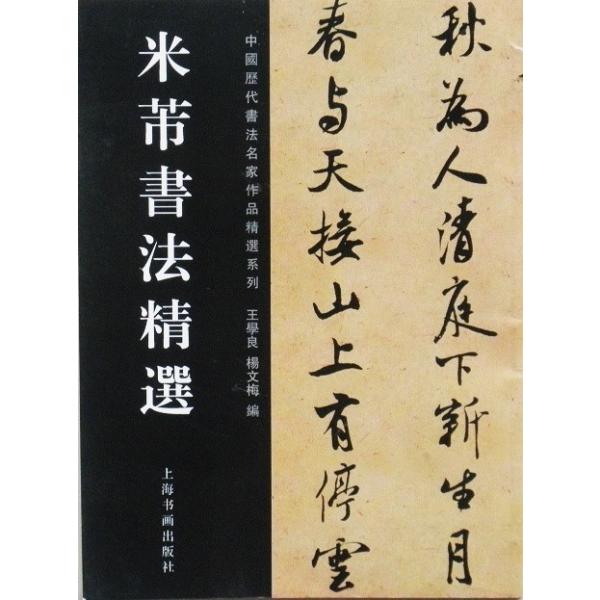 秋為人清庭下新生月
春与天接山上有停雲
中國歷代書法名家作品精選系列 王學良 楊文梅 編
米芾書法精選
上海书画出版社